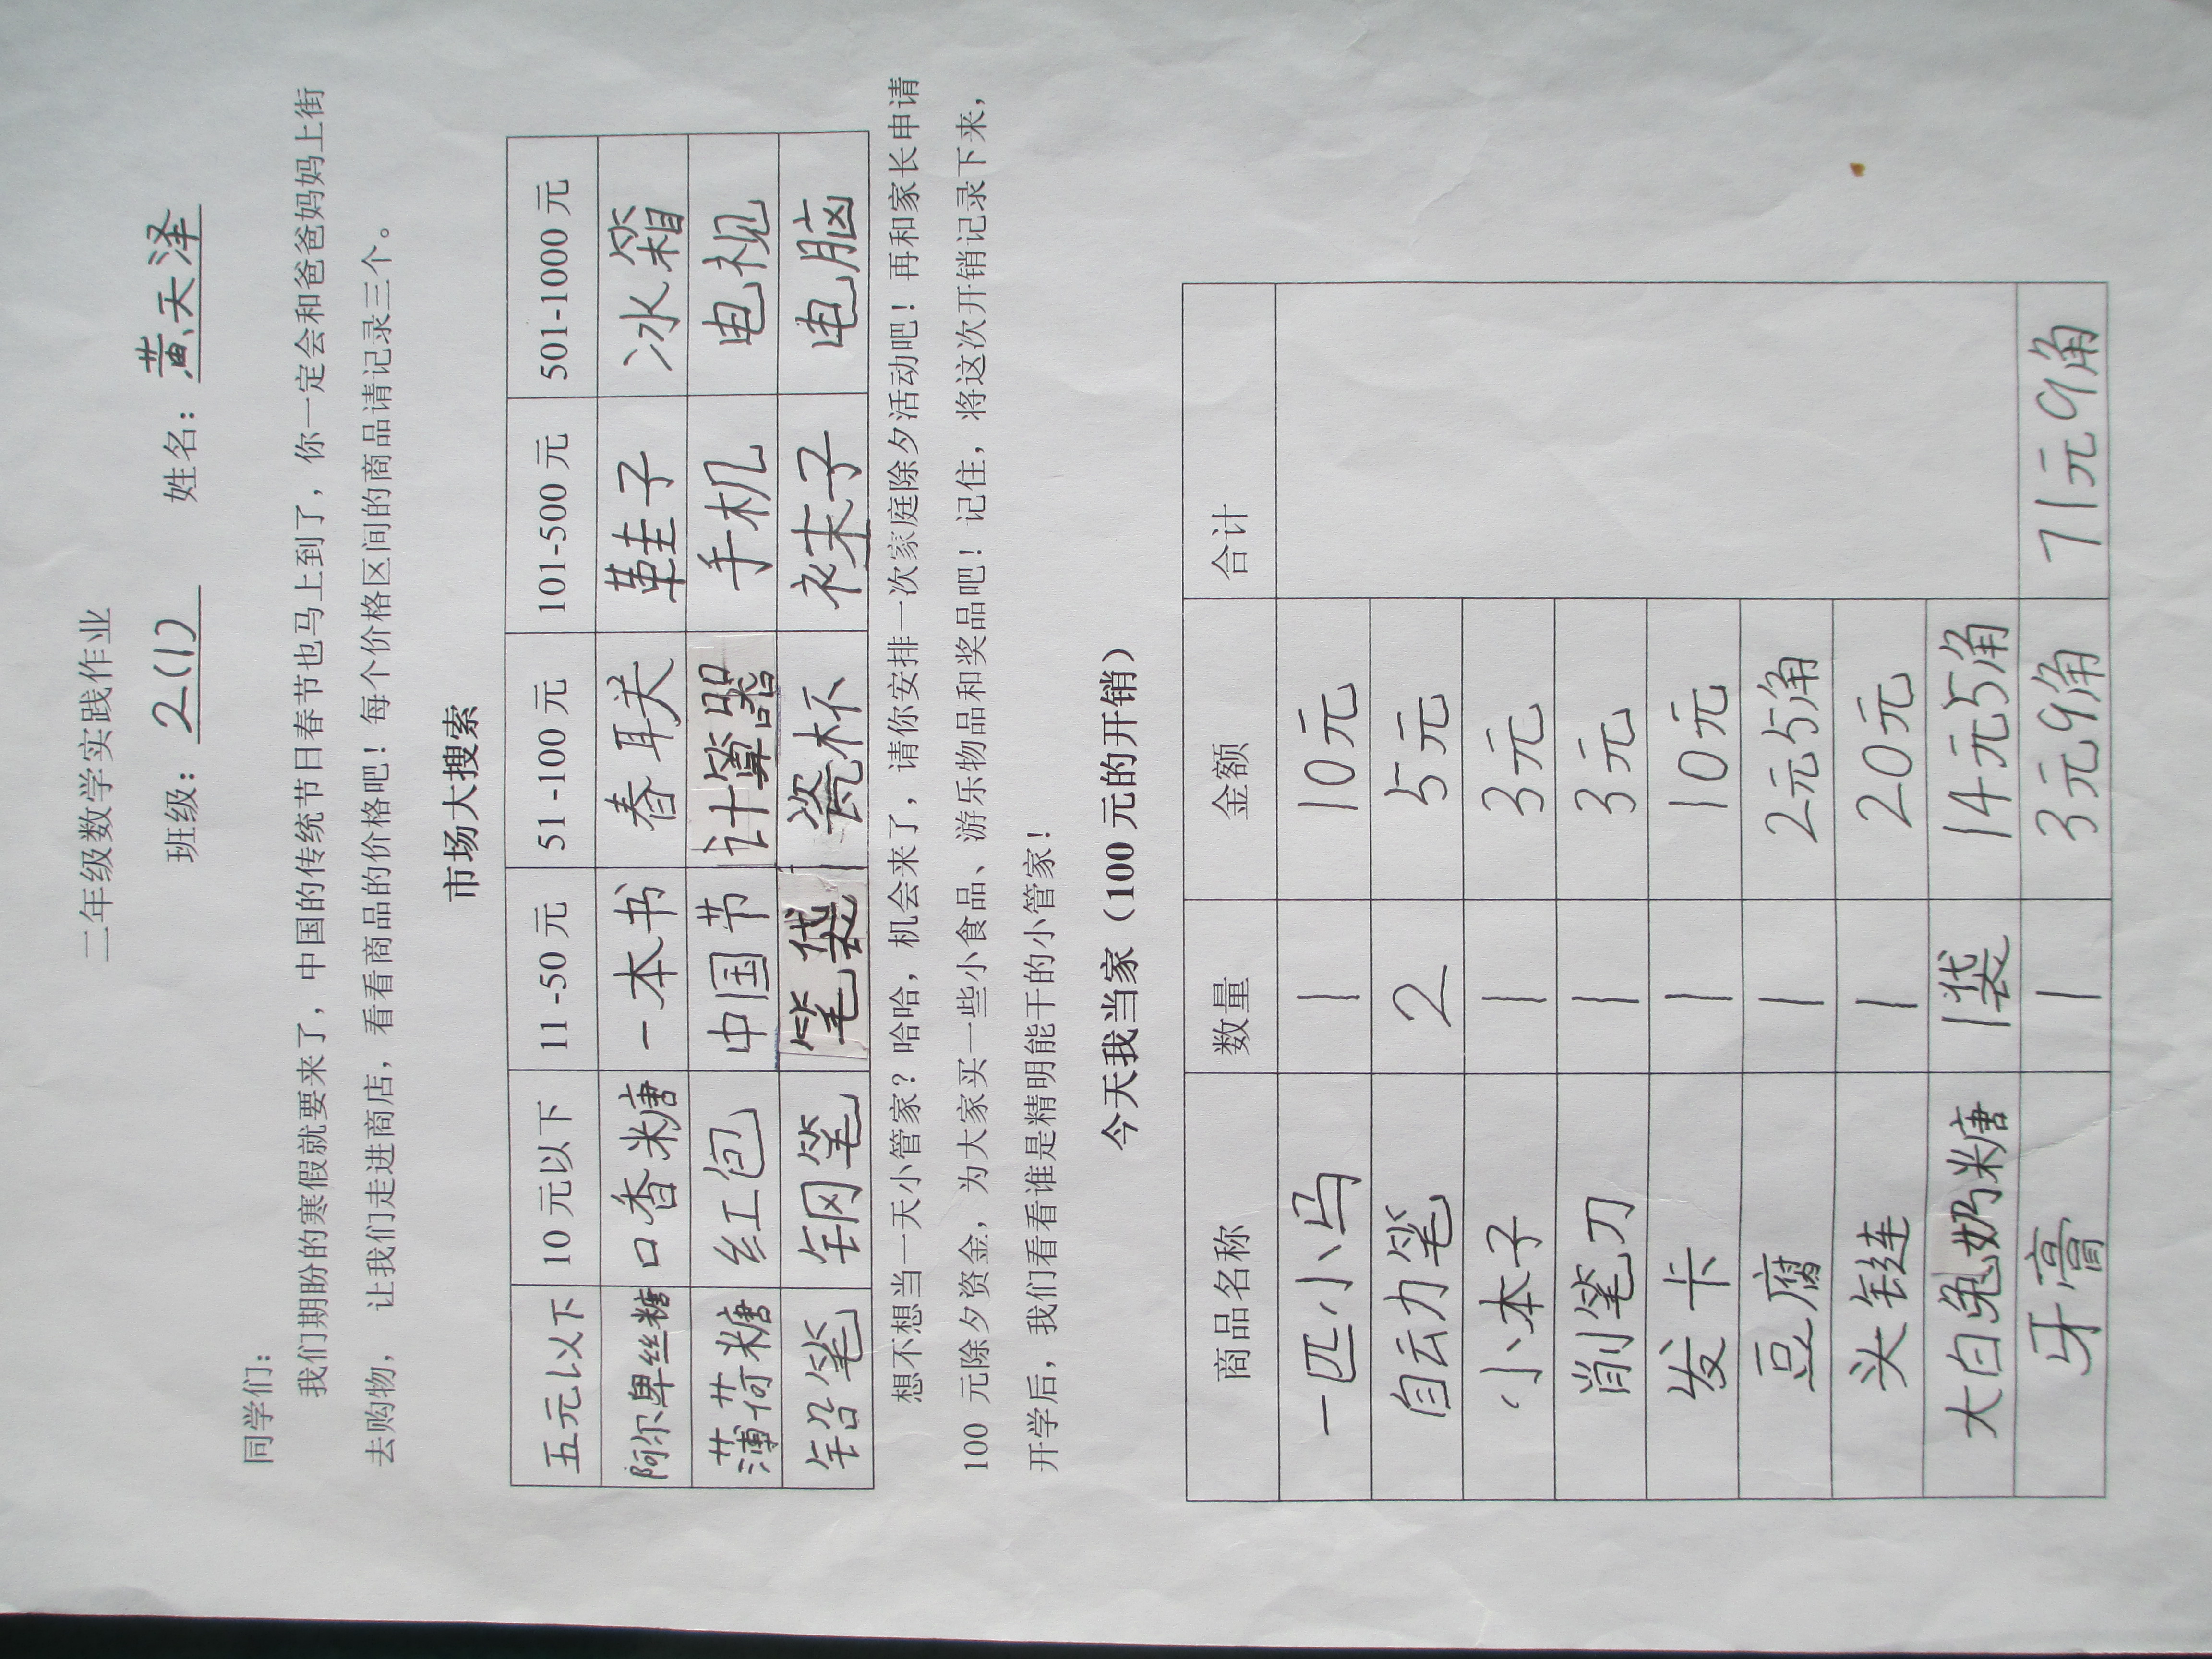 二年级数学实践作业
班级：2(1) 姓名：黄天泽
同学们：
我们期盼的寒假就要来了，中国的传统节日春节也马上到了，你一定会和爸爸妈妈上街
去购物，让我们走进商店，看看商品的价格吧！每个价格区间的商品请记录三个。
市场大搜索
五元以下 10 元以下 11 -50 元 51 -100 元 101-500 元 501-1000 元
阿尔卑丝糖 口香糖 一本书 春联 鞋子 冰箱
薄荷糖 红包 中国节 计算器 手机 电视
铅笔 钢笔 笔袋 瓷杯 袜子 电脑
想不想当一天小管家？哈哈，机会来了，请你安排一次家庭除夕活动吧！再和家长申请
100 元除夕资金，为大家买一些小食品、游乐物品和奖品吧！记住，将这次开销记录下来，
开学后，我们看看谁是精明能干的小管家！
今天我当家（100 元的开销）
商品名称 数量 金额 合计
一匹小马 1 10元
自动笔 2 5元
小本子 1 3元
削笔刀 1 3元
发卡 1 10元
豆腐 1 2元5角
头链 1 20元
大白兔奶糖 1袋 14元5角
牙膏 1 3元9角 71元9角